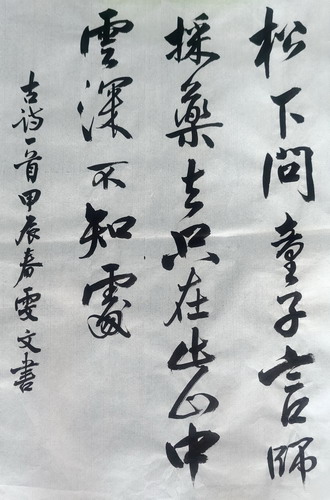 松下問童子言師
採藥去只在此山中
雲深不知處
古詩一首甲辰春雯文書